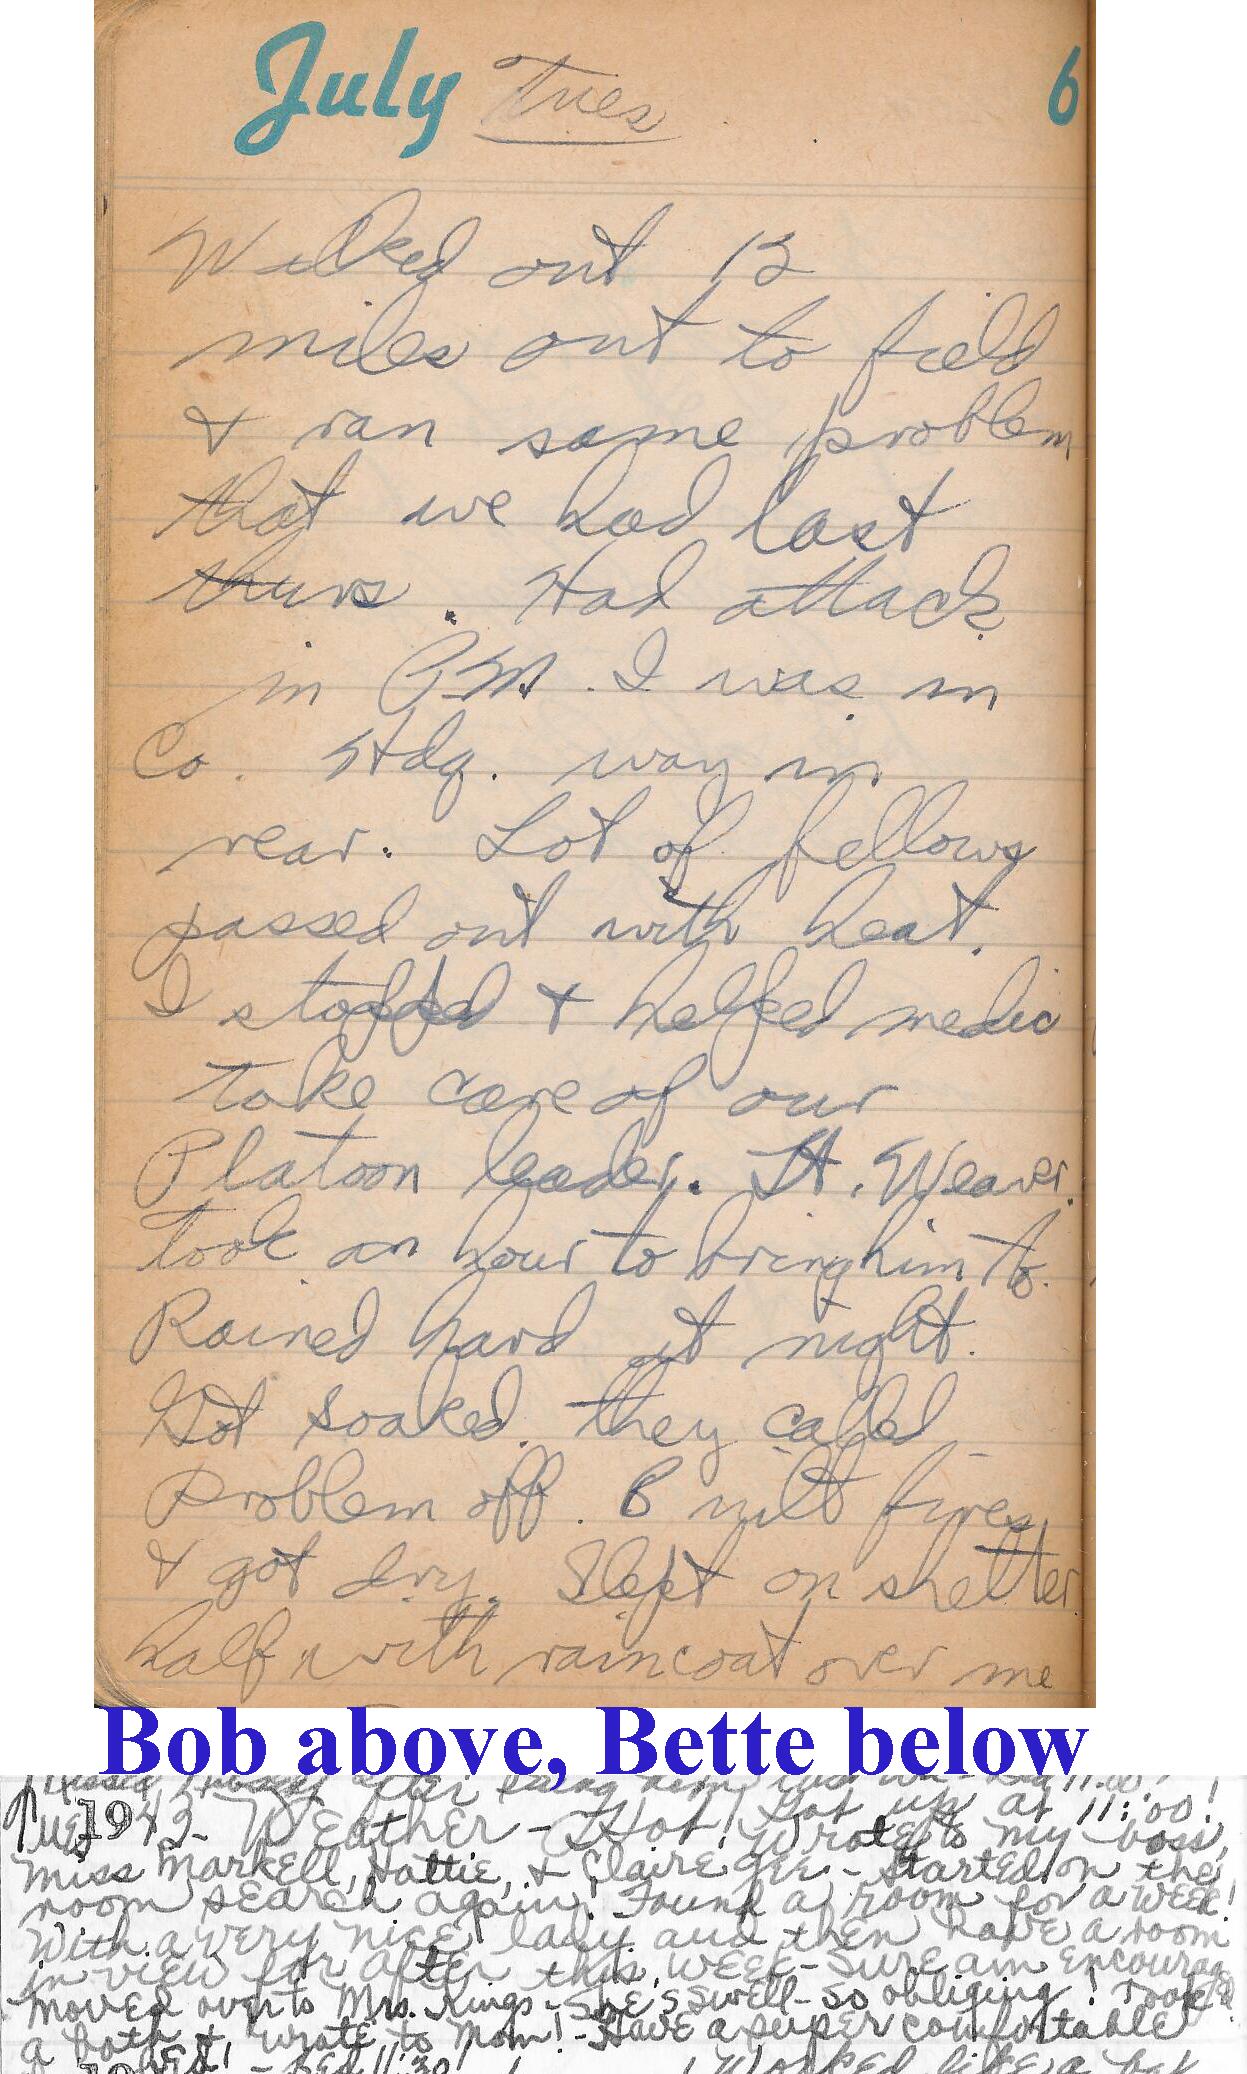 July Tues 6
Walked out 13
miles out to field
& ran same problem
that we had last
thurs. Had attack
in P.M. I was in
Co. Hdq. way in
rear. Lot of fellows
passed out with heat.
I stopped & helped medic
take care of our
Platoon leader. Lt. Weaver.
took an hour to bring him to.
Rained hard at night.
Got soaked. they called
problem off. Built fires
& got dry. Slept on shelter
half with raincoat over me
Bob above, Bette below
Tues 1943 - WEathER - Hot! Got up at 11:00! Wrote to my boss,
Miss MarkEll, Hattie, & ClairE - StartEd on thE
room sEarch again! Found a room for a wEEk!
With a vEry nicE lady and thEn havE a room
in viEw for aftEr this wEEk - SurE am Encouraged
MovEd ovEr to Mrs. Kings - ShE's swEll - so obliging! Took
a bath & wrotE to Mom! - HavE a supEr comfortablE
bEd! - BEd 11:30!
WorkEd likE a